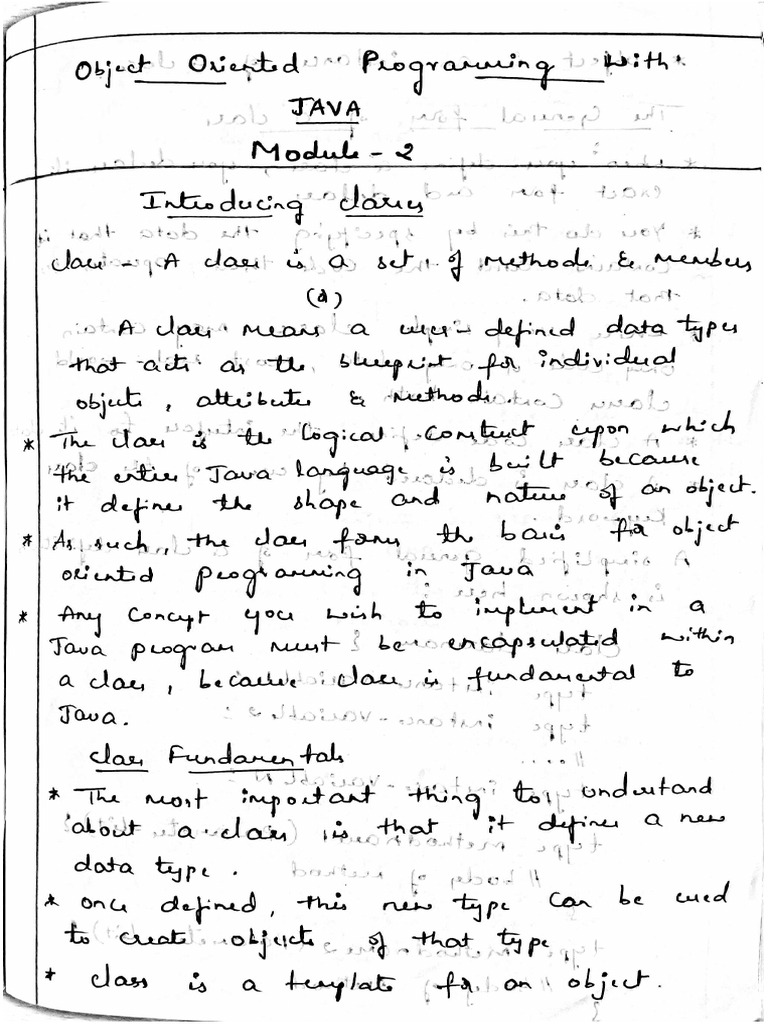 Object Oriented Programming with
JAVA
Module - 2
Introducing classes
class - A class is a set of methods & members
(d)
A class means a user-defined data types
that acts as the blueprint for individual
objects, attributes & methods.
* The class is the logical construct upon which
the entire Java language is built because
it defines the shape and nature of an object.
* As such, the class forms the basis for object
oriented programming in Java
* Any concept you wish to implement in a
Java program must be encapsulated within
a class, because class is fundamental to
Java.
class Fundamentals
* The most important thing to understand
about a class is that it defines a new
data type.
* once defined, this new type can be used
to create objects of that type,
* class is a template for an object.